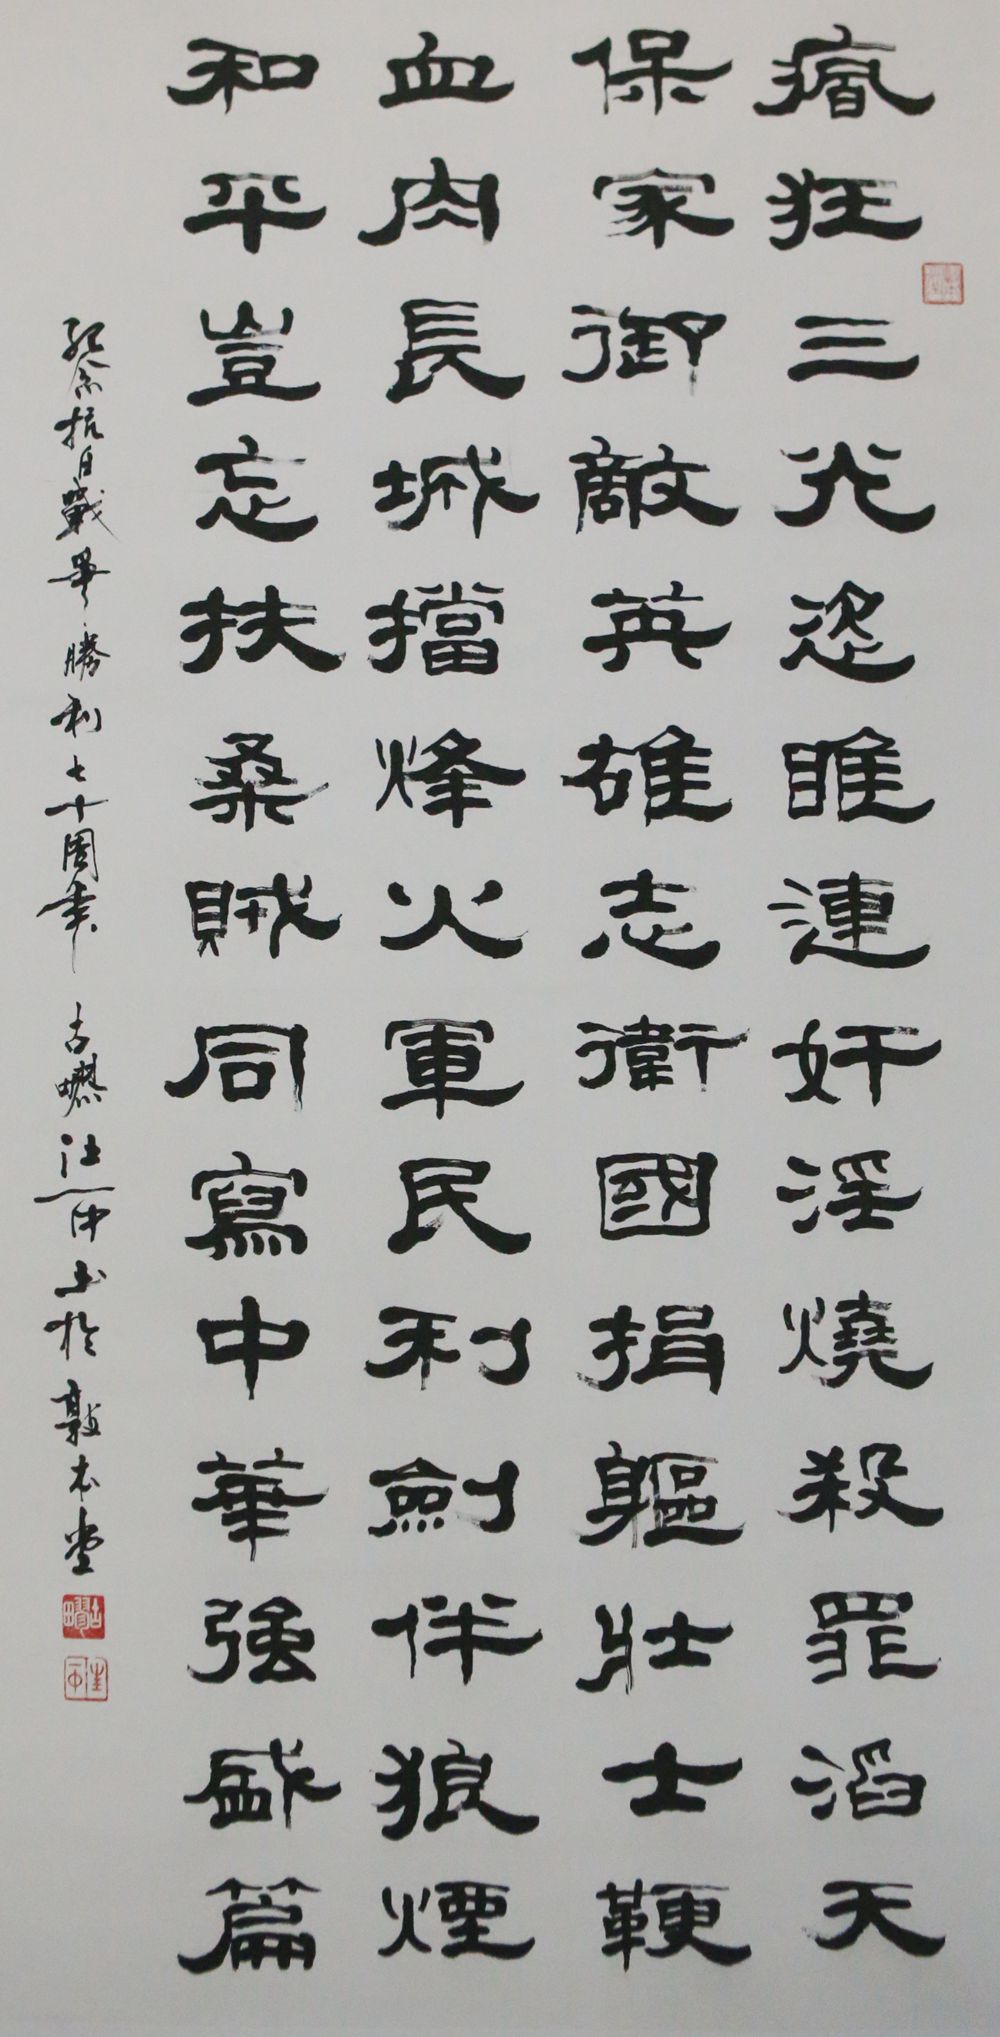 狂三光恣睢連奸淫燒殺罪滔天
保家御敵英雄志衛國捐軀壯士鞭
血肉長城擋烽火軍民利劍伴狼煙
和平豈忘扶桑賊同寫中華強盛篇
紀念抗日戰爭勝利七十周年 古疁汪书於敦本堂
古疁